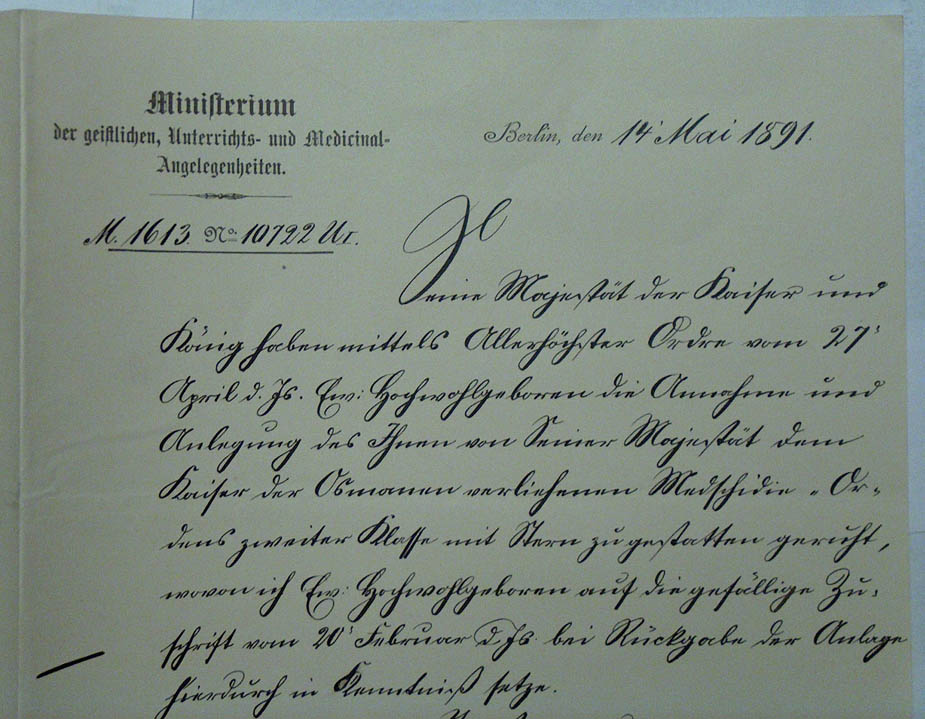 Ministerium
der geistlichen, Unterrichts- und Medicinal-
Angelegenheiten.
Berlin, den 14' Mai 1891.
M. 1613. No: 10722 Ur.
Seine Majestät der Kaiser und
König haben mittels Allerhöchster Ordre vom 27'
April d. Js. Ew: Hochwohlgeboren die Annahme und
Anlegung des Ihnen von Seiner Majestät dem
Kaiser der Osmanen verliehenen Medschidie-Or-
dens zweiter Klasse mit Stern zu gestatten geruht,
wovon ich Ew: Hochwohlgeboren auf die gefällige Zu-
schrift vom 20' Februar d. Js. bei Rückgabe der Anlage
hierdurch in Kenntniß setze.